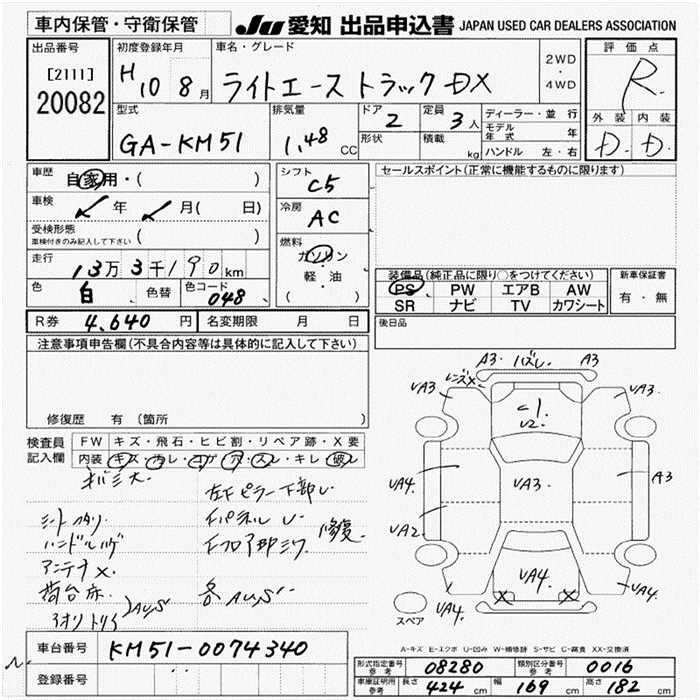 車内保管・守衛保管
JU 愛知 出品申込書 JAPAN USED CAR DEALERS ASSOCIATION
出品番号
[2111]
20082
初度登録年月
H 10 8月
車名・グレード
ライトエーストラック DX
2WD
・
4WD
評価点
R
外装 内装
D D
型式
GA-KM51
排気量
1.48 CC
ドア
2
定員
3人
形状
積載
kg
ディーラー・並行
モデル年式 年
ハンドル 左・右
車歴
自家用・( )
車検
年 月( 日)
受検形態
車検付きのみ記入して下さい ( )
走行
13万3千190km
色
白
色替
色コード
048
シフト
C5
冷房
AC
燃料
ガソリン
・
軽・油
( )
セールスポイント(正常に機能するものに限ります)
装備品(純正品に限り○をつけてください)
PS PW エアB AW
SR ナビ TV カワシート
新車保証書
有・無
R券 4,640円
名変期限 月 日
後日品
注意事項申告欄(不具合内容等は具体的に記入して下さい)
修復歴 有(箇所 )
検査員
記入欄
FW キズ・飛石・ヒビ割・リペア跡・X要
内装 キズ・ヨレ・コゲ・穴・スレ・キレ・破レ
左下ピラー下部
シート
ハンドル
アンテナX
荷台床
アオリ
修復
各AUS
A3 ハズレ A3
レンズX
UA3
UA3
U2
UA3
UA4
UA2
A3
UA4
UA4
X X
UA4
UA4
スペア
A-キズ E-エクボ U-凹み W-補修跡 S-サビ C-腐食 XX-交換済
車台番号
KM51-0074340
登録番号
形式指定番号
参考
08280
類別区分番号
参考
0016
車庫証明用
参考
長さ 424 cm
幅 169 cm
高さ 182 cm